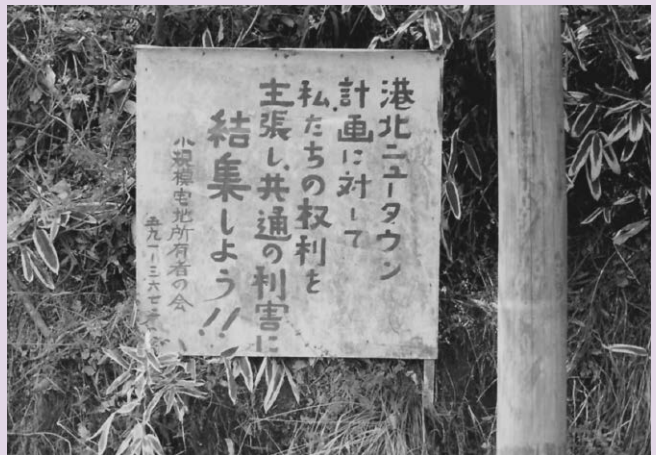 港北ニュータウン
計画に対して
私たちの权利を
主張し、共通の利害に
結集しよう!!
小規模宅地所有者の会